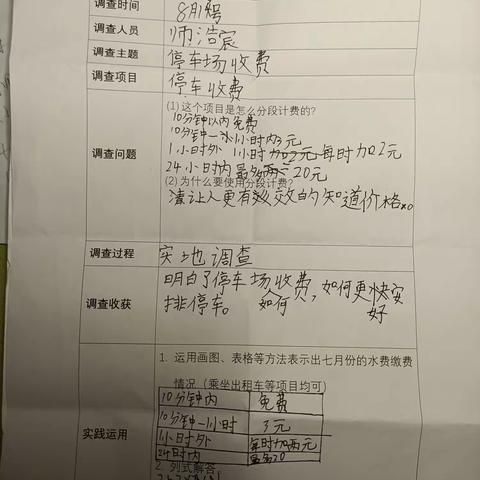 调查时间 8月1号
调查人员 师浩宸
调查主题 停车场收费
调查项目 停车收费
(1) 这个项目是怎么分段计费的?
10分钟以内免费
10分钟—1小时内3元
调查问题
1小时外 每时加2元
24小时内最多 20元
(2) 为什么要使用分段计费?
让人更有效的知道价格。
调查过程 实地调查
明白了停车场收费,如何更快安
调查收获
排停车。 如何 好
1. 运用画图、表格等方法表示出七月份的水费缴费
情况(乘坐出租车等项目均可)
10分钟内 免费
10分钟—1小时 3元
实践运用
1小时外 每时加两元
24时内 最多20
2. 列式解答。